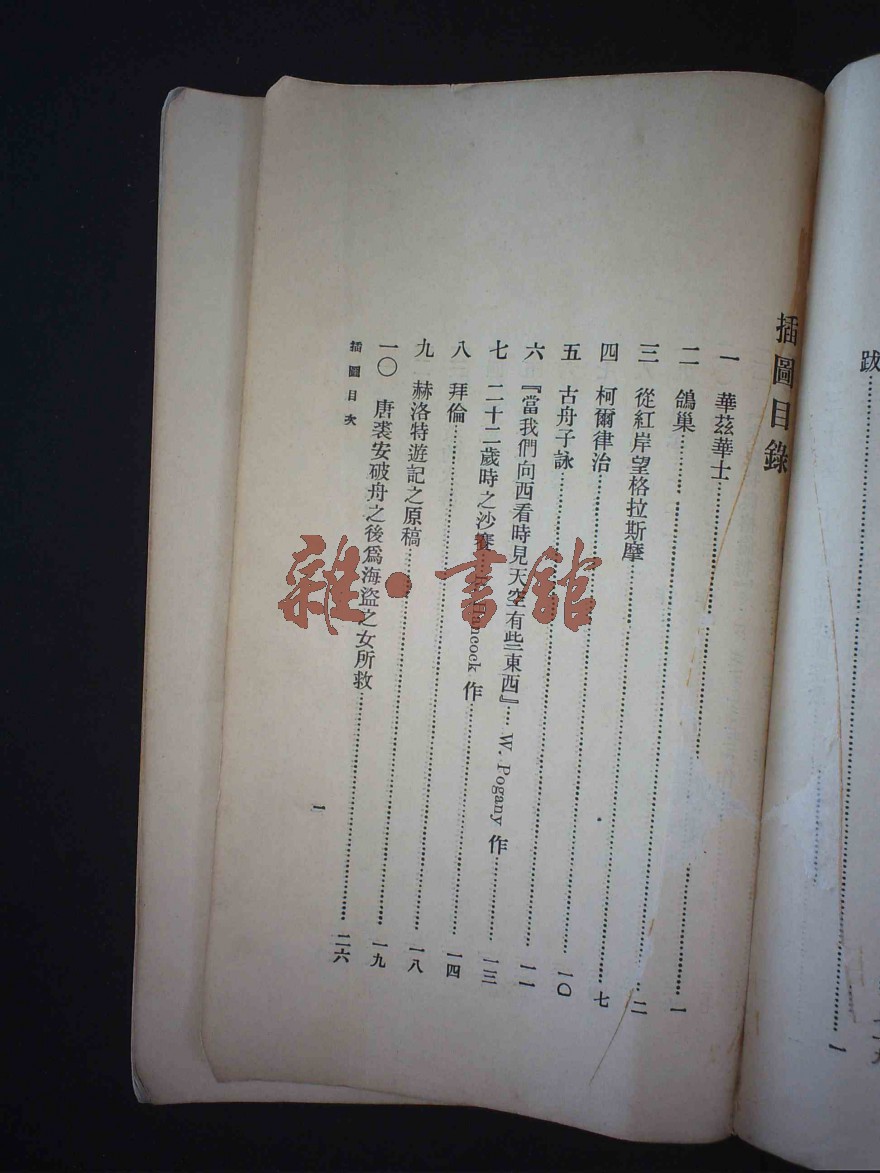 跋……一
插圖目錄
一 華茲華士……一
二 鴿巢……二
三 從紅岸望格拉斯摩……七
四 柯爾律治……一〇
五 古舟子詠……一一
六 『當我們向西看時見天空有些東西』…… W. Pogany 作……一三
七 二十二歲時之沙賽…… Hancock 作……一四
八 拜倫……一八
九 赫洛特遊記之原稿……一九
一〇 唐裘安破舟之後爲海盜之女所救……二六
插圖目次
一
雜·書館